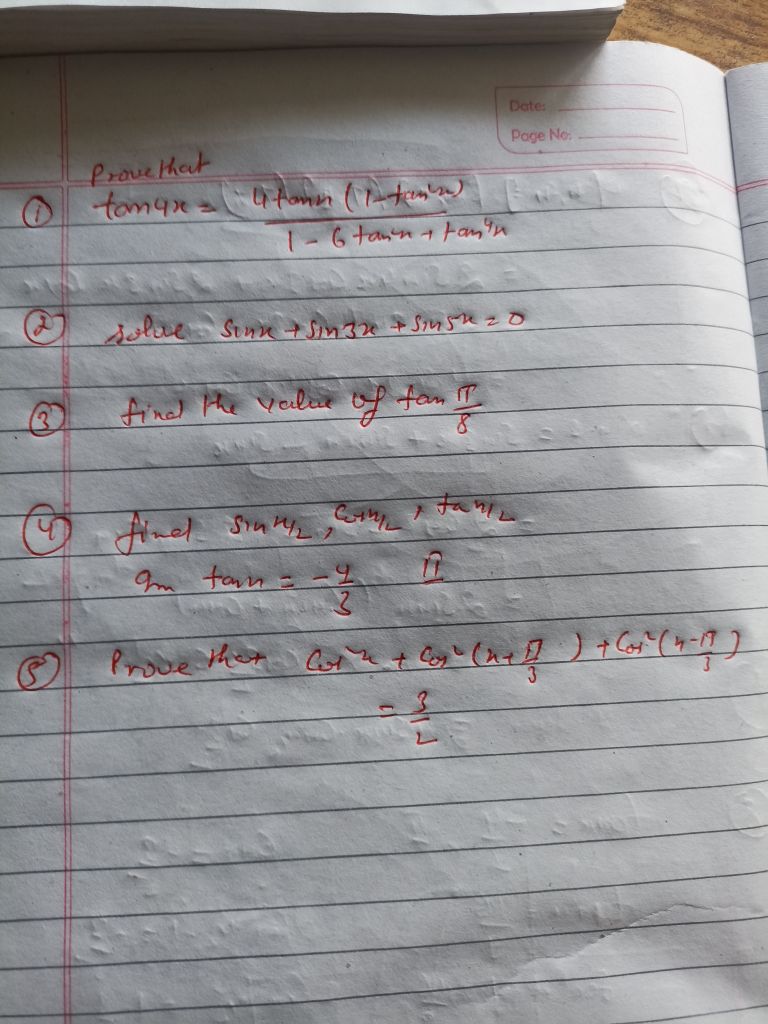 Date:
Page No:
Prove that
① tan4x = 4tanx (1-tan²x)
1 - 6 tan²x + tan⁴x
② solve sinx + sin3x + sin5x = 0
③ find the value of tan π/8
④ find sin x/2, cos x/2, tan x/2
tanx = -4/3 II
⑤ Prove that Cos²x + Cos²(x+π/3) + Cos²(x-π/3)
= 3/2